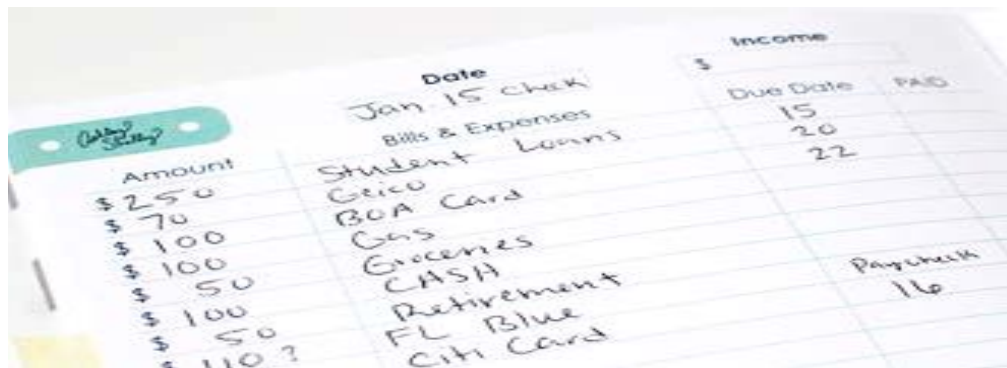 Income
Date $
Jan 15 Check
Amount Bills & Expenses Due Date PAID
$ 250 Student Loans 15
$ 70 Geico 20
$ 100 BOA Card 22
$ 100 Gas
$ 50 Groceries
$ 100 CASH
$ 50 Retirement
$ 110? FL Blue Paycheck
Citi Card 16